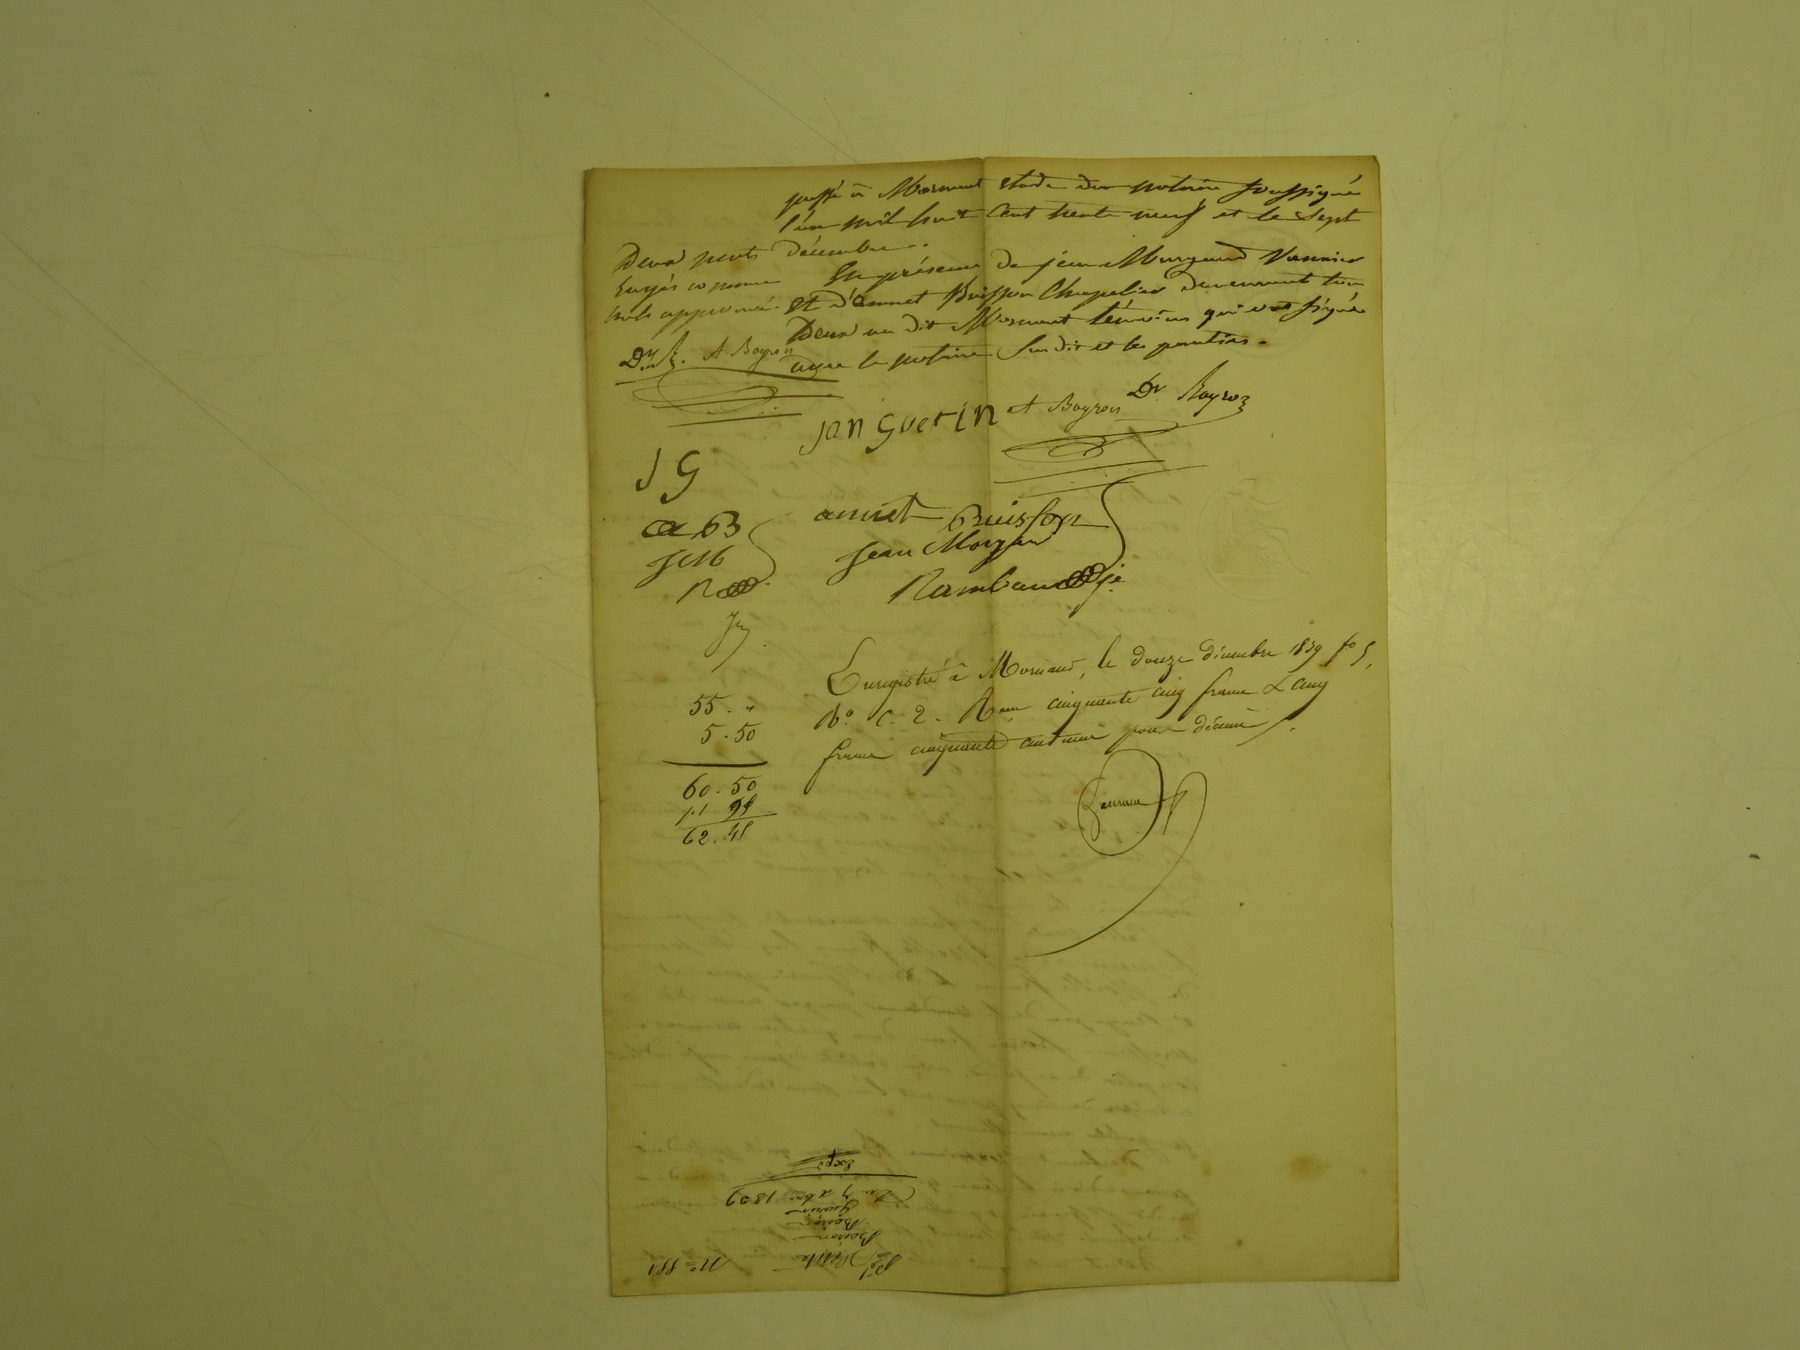 passé à Mornant étude du notaire soussigné
l'an mil huit cent trente neuf et le sept
décembre.
En présence de jean Morgand Vannier
et d'annet Buisson Chapelier demeurant tous
deux au dit Mornant témoins qui ont signé
avec le notaire susdit et les parties.
Deux mots
rayés comme
nuls approuvé.
Dr B. A Boyron
jan guerin A Boyron Dr Boyron
J G
a B
annet Buisson
J M
jean Morgand
R
Rambaud
Enregistré à Mornant, le douze décembre 1839 fo 5,
Ro c. 2. Reçu cinquante cinq francs & cinq
francs cinquante centimes pour décime
55. "
5.50
60.50
62.45
No 551
Boiron
Boiron
Guerin
Du 7 xbre 1839
Expé